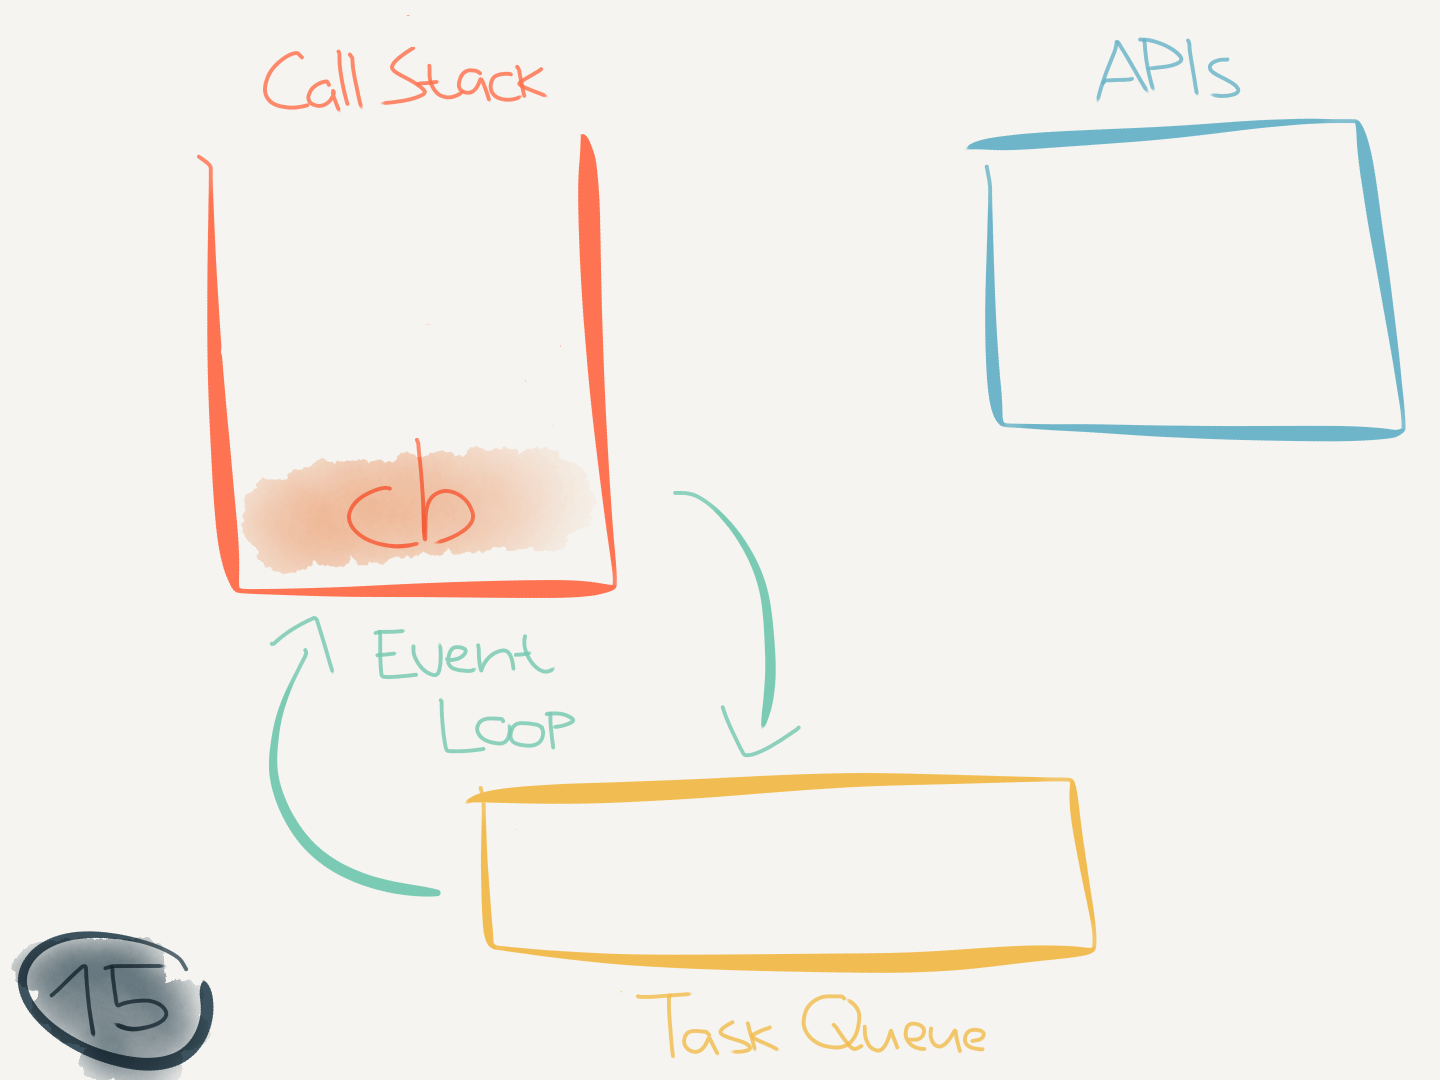 Call Stack
APIs
cb
Event
Loop
Task Queue
15